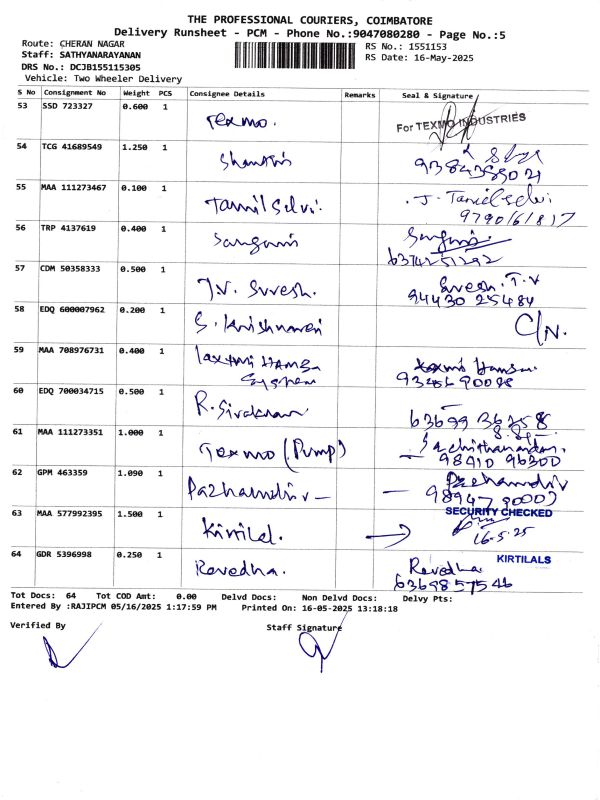 THE PROFESSIONAL COURIERS, COIMBATORE
Delivery Runsheet - PCM - Phone No.:9047080280 - Page No.:5
Route: CHERAN NAGAR
RS No.: 1551153
Staff: SATHYANARAYANAN
RS Date: 16-May-2025
DRS No.: DCJB155115305
Vehicle: Two Wheeler Delivery
S No Consignment No Weight PCS Consignee Details Remarks Seal & Signature
53 SSD 723327 0.600 1 Texmo. For TEXMO INDUSTRIES
54 TCG 41689549 1.250 1 Shanthi
55 MAA 111273467 0.100 1 Tamil Selvi. J. Tamil Selvi
9790161817
56 TRP 4137619 0.400 1 Sangavi
6374251292
57 CDM 50358333 0.500 1 T.V. Suresh. Suresh.T.V
94430 25484
58 EDQ 600007962 0.200 1 C/N.
59 MAA 708976731 0.400 1 Laxmi Hamsa
60 EDQ 700034715 0.500 1
63699 36758
61 MAA 111273351 1.000 1 Texmo (Pump) Sachithanandan.
98910 96300
62 GPM 463359 1.090 1
SECURITY CHECKED
63 MAA 577992395 1.500 1 Kirtilal.
16-5-25
KIRTILALS
64 GDR 5396998 0.250 1 Revedha. Revedha
6369857546
Tot Docs: 64 Tot COD Amt: 0.00 Delvd Docs: Non Delvd Docs: Delvy Pts:
Entered By :RAJIPCM 05/16/2025 1:17:59 PM Printed On: 16-05-2025 13:18:18
Verified By Staff Signature